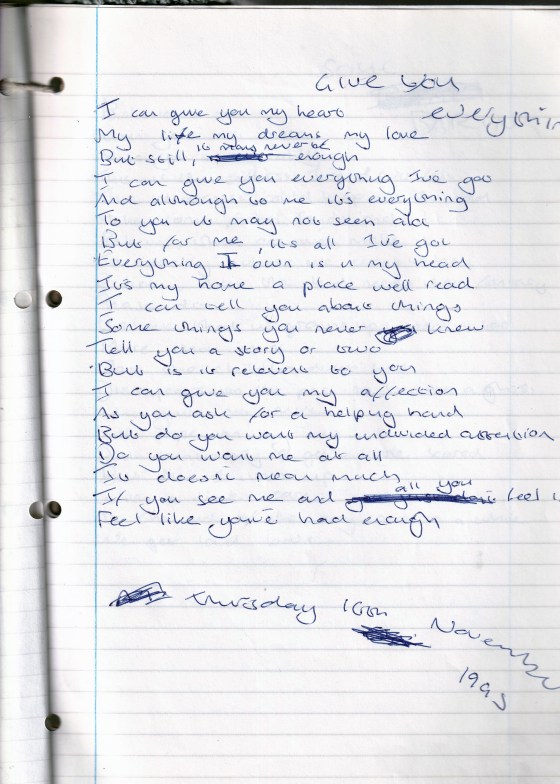 Give you
everythin
I can give you my heart
My life my dreams my love
it may never be
But still, enough
I can give you everything I've got
And although to me it's everything
To you it may not seen alot
But for me, it's all I've got
Everything I own is in my head
It's my home a place well read
I can tell you about things
Some things you never knew
Tell you a story or two
But is it relevent to you
I can give you my affection
As you ask for a helping hand
But do you want my undivided attention
Do you want me at all
It doesn't mean much
all you
If you see me and feel is
Feel like you've had enough
Thursday 16th
November
1995